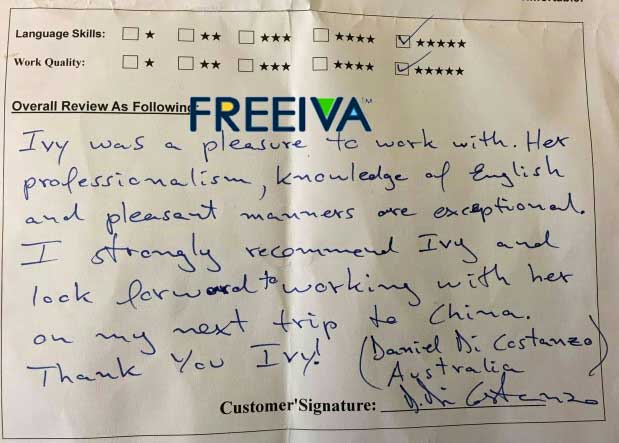 Language Skills: ☐ ★ ☐ ★★ ☐ ★★★ ☐ ★★★★ ☑ ★★★★★
Work Quality: ☐ ★ ☐ ★★ ☐ ★★★ ☐ ★★★★ ☑ ★★★★★
Overall Review As Following:
FREEIVA™
Ivy was a pleasure to work with. Her
professionalism, knowledge of English
and pleasant manners are exceptional.
I strongly recommend Ivy and
look forward to working with her
on my next trip to China.
Thank You Ivy! (Daniel Di Costanzo)
Australia
Customer'Signature: D. Di Costanzo